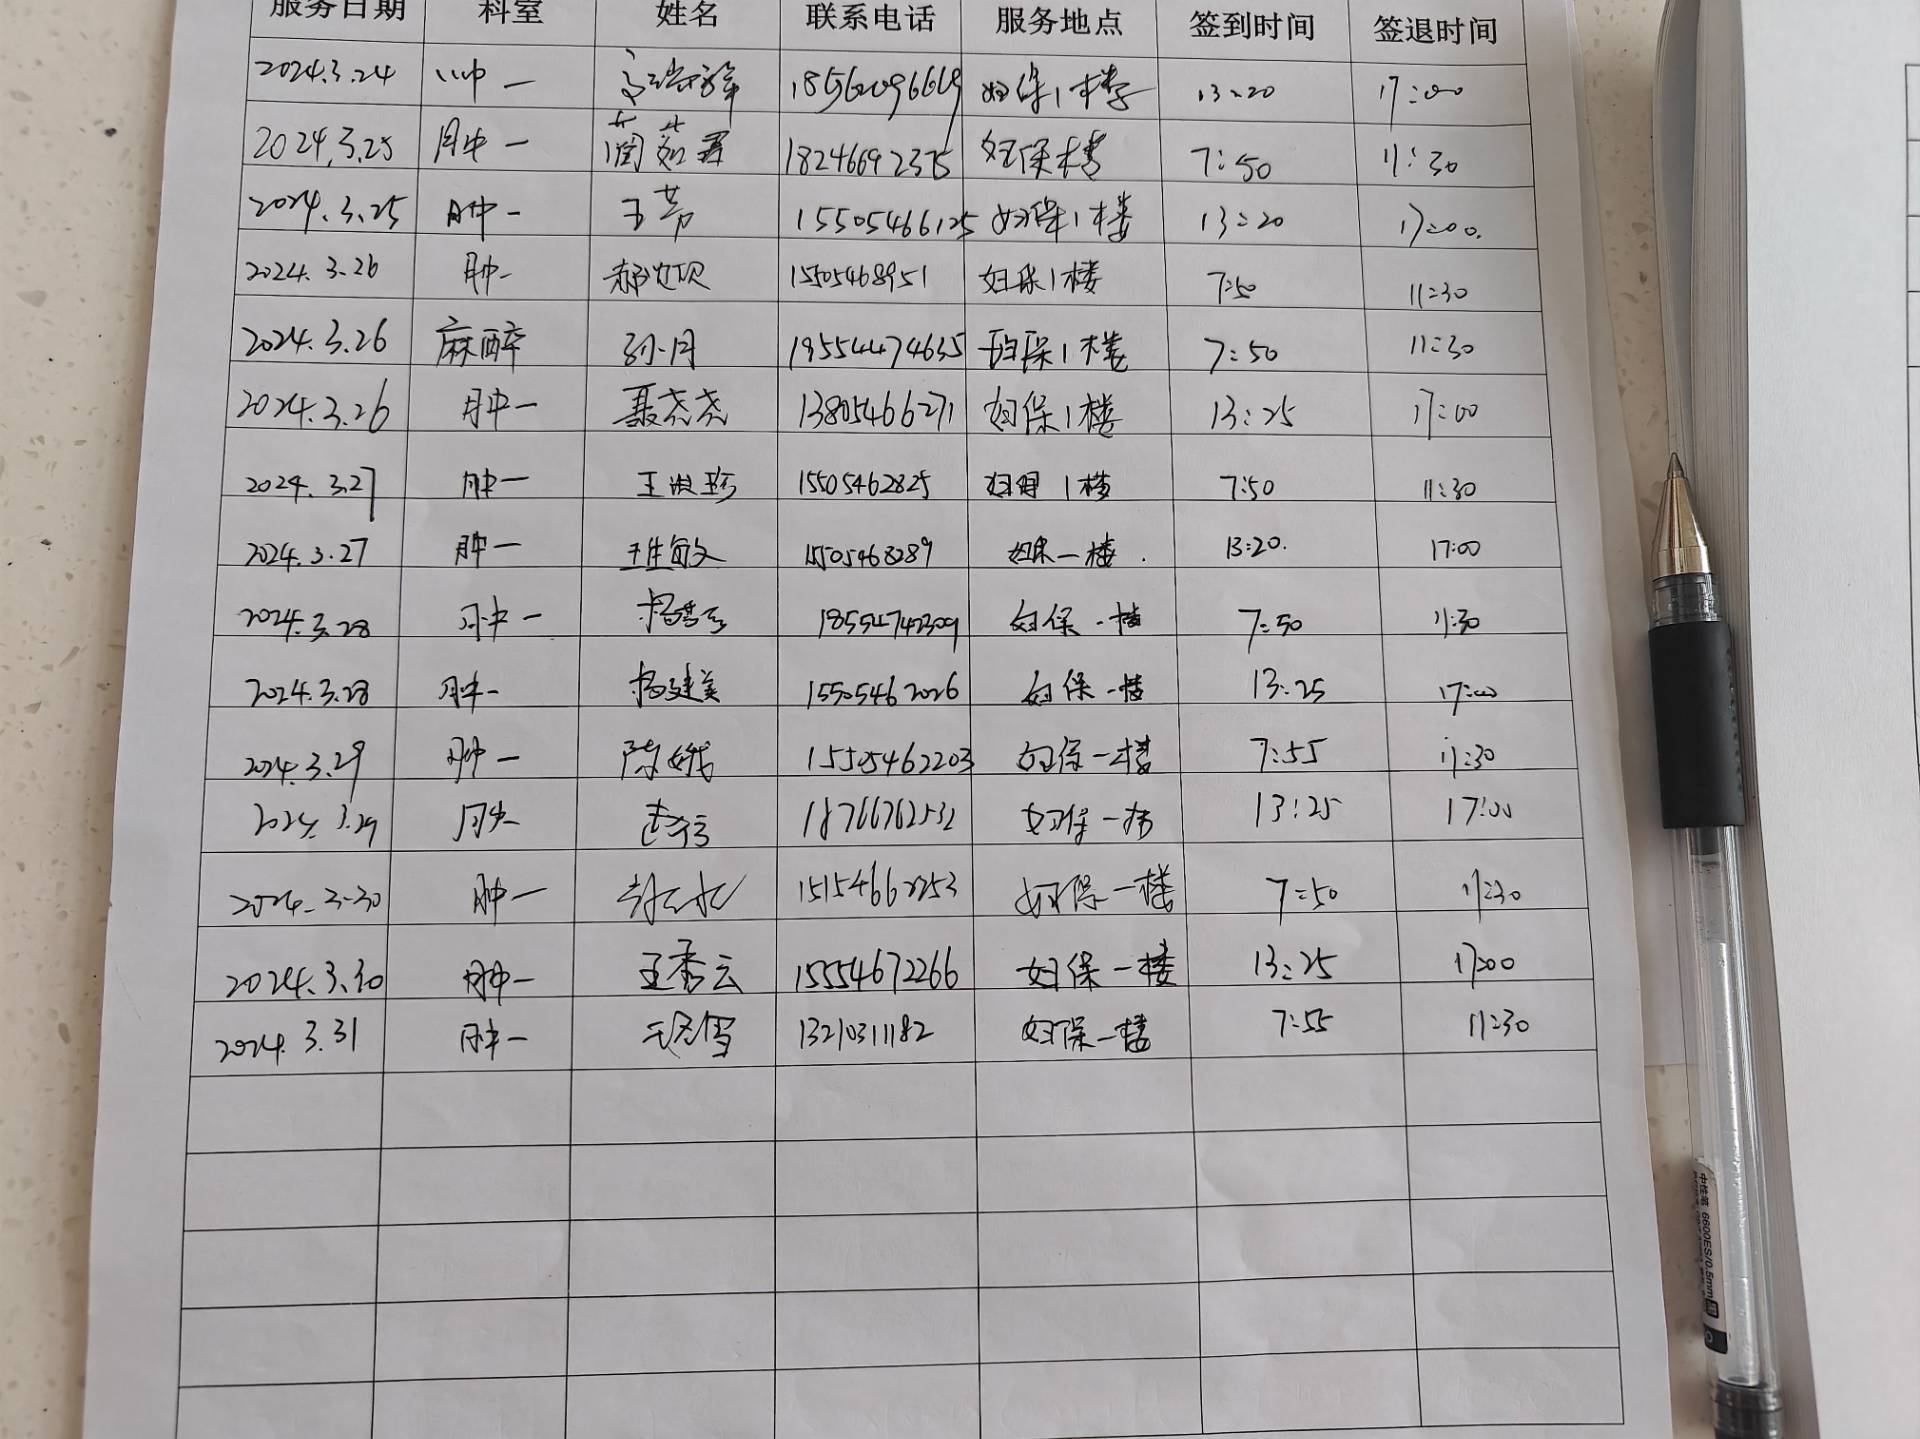 服务日期 科室 姓名 联系电话 服务地点 签到时间 签退时间
2024.3.24 一 妇保1楼 13:20 17:00
2024.3.25 肿一 18246692375 妇保楼 7:50 11:30
2024.3.25 肿一 王芳 15505466125 妇保1楼 13:20 17:00.
2024.3.26 肿一 郝 15505468951 妇保1楼 7:50 11:30
2024.3.26 麻醉 孙月 18554474635 妇保1楼 7:50 11:30
2024.3.26 肿一 聂尧尧 13805466271 妇保1楼 13:25 17:00
2024.3.27 肿一 王 15505462825 妇保1楼 7:50 11:30
2024.3.27 肿一 敏 15505468289 妇保一楼. 13:20. 17:00
2024.3.28 肿一 杨 18554742309 妇保一楼 7:50 11:30
2024.3.28 肿一 杨建美 15505462026 妇保一楼 13:25 17:00
2024.3.29 肿一 陈娥 15505462203 妇保一楼 7:55 11:30
2024.3.29 肿一 18766762532 妇保一楼 13:25 17:00
2024.3.30 肿一 妇保一楼 7:50 11:30
2024.3.30 肿一 王秀云 15554672266 妇保一楼 13:25 17:00
2024.3.31 肿一 13210311182 妇保一楼 7:55 11:30
中性笔 6600ES/0.5mm